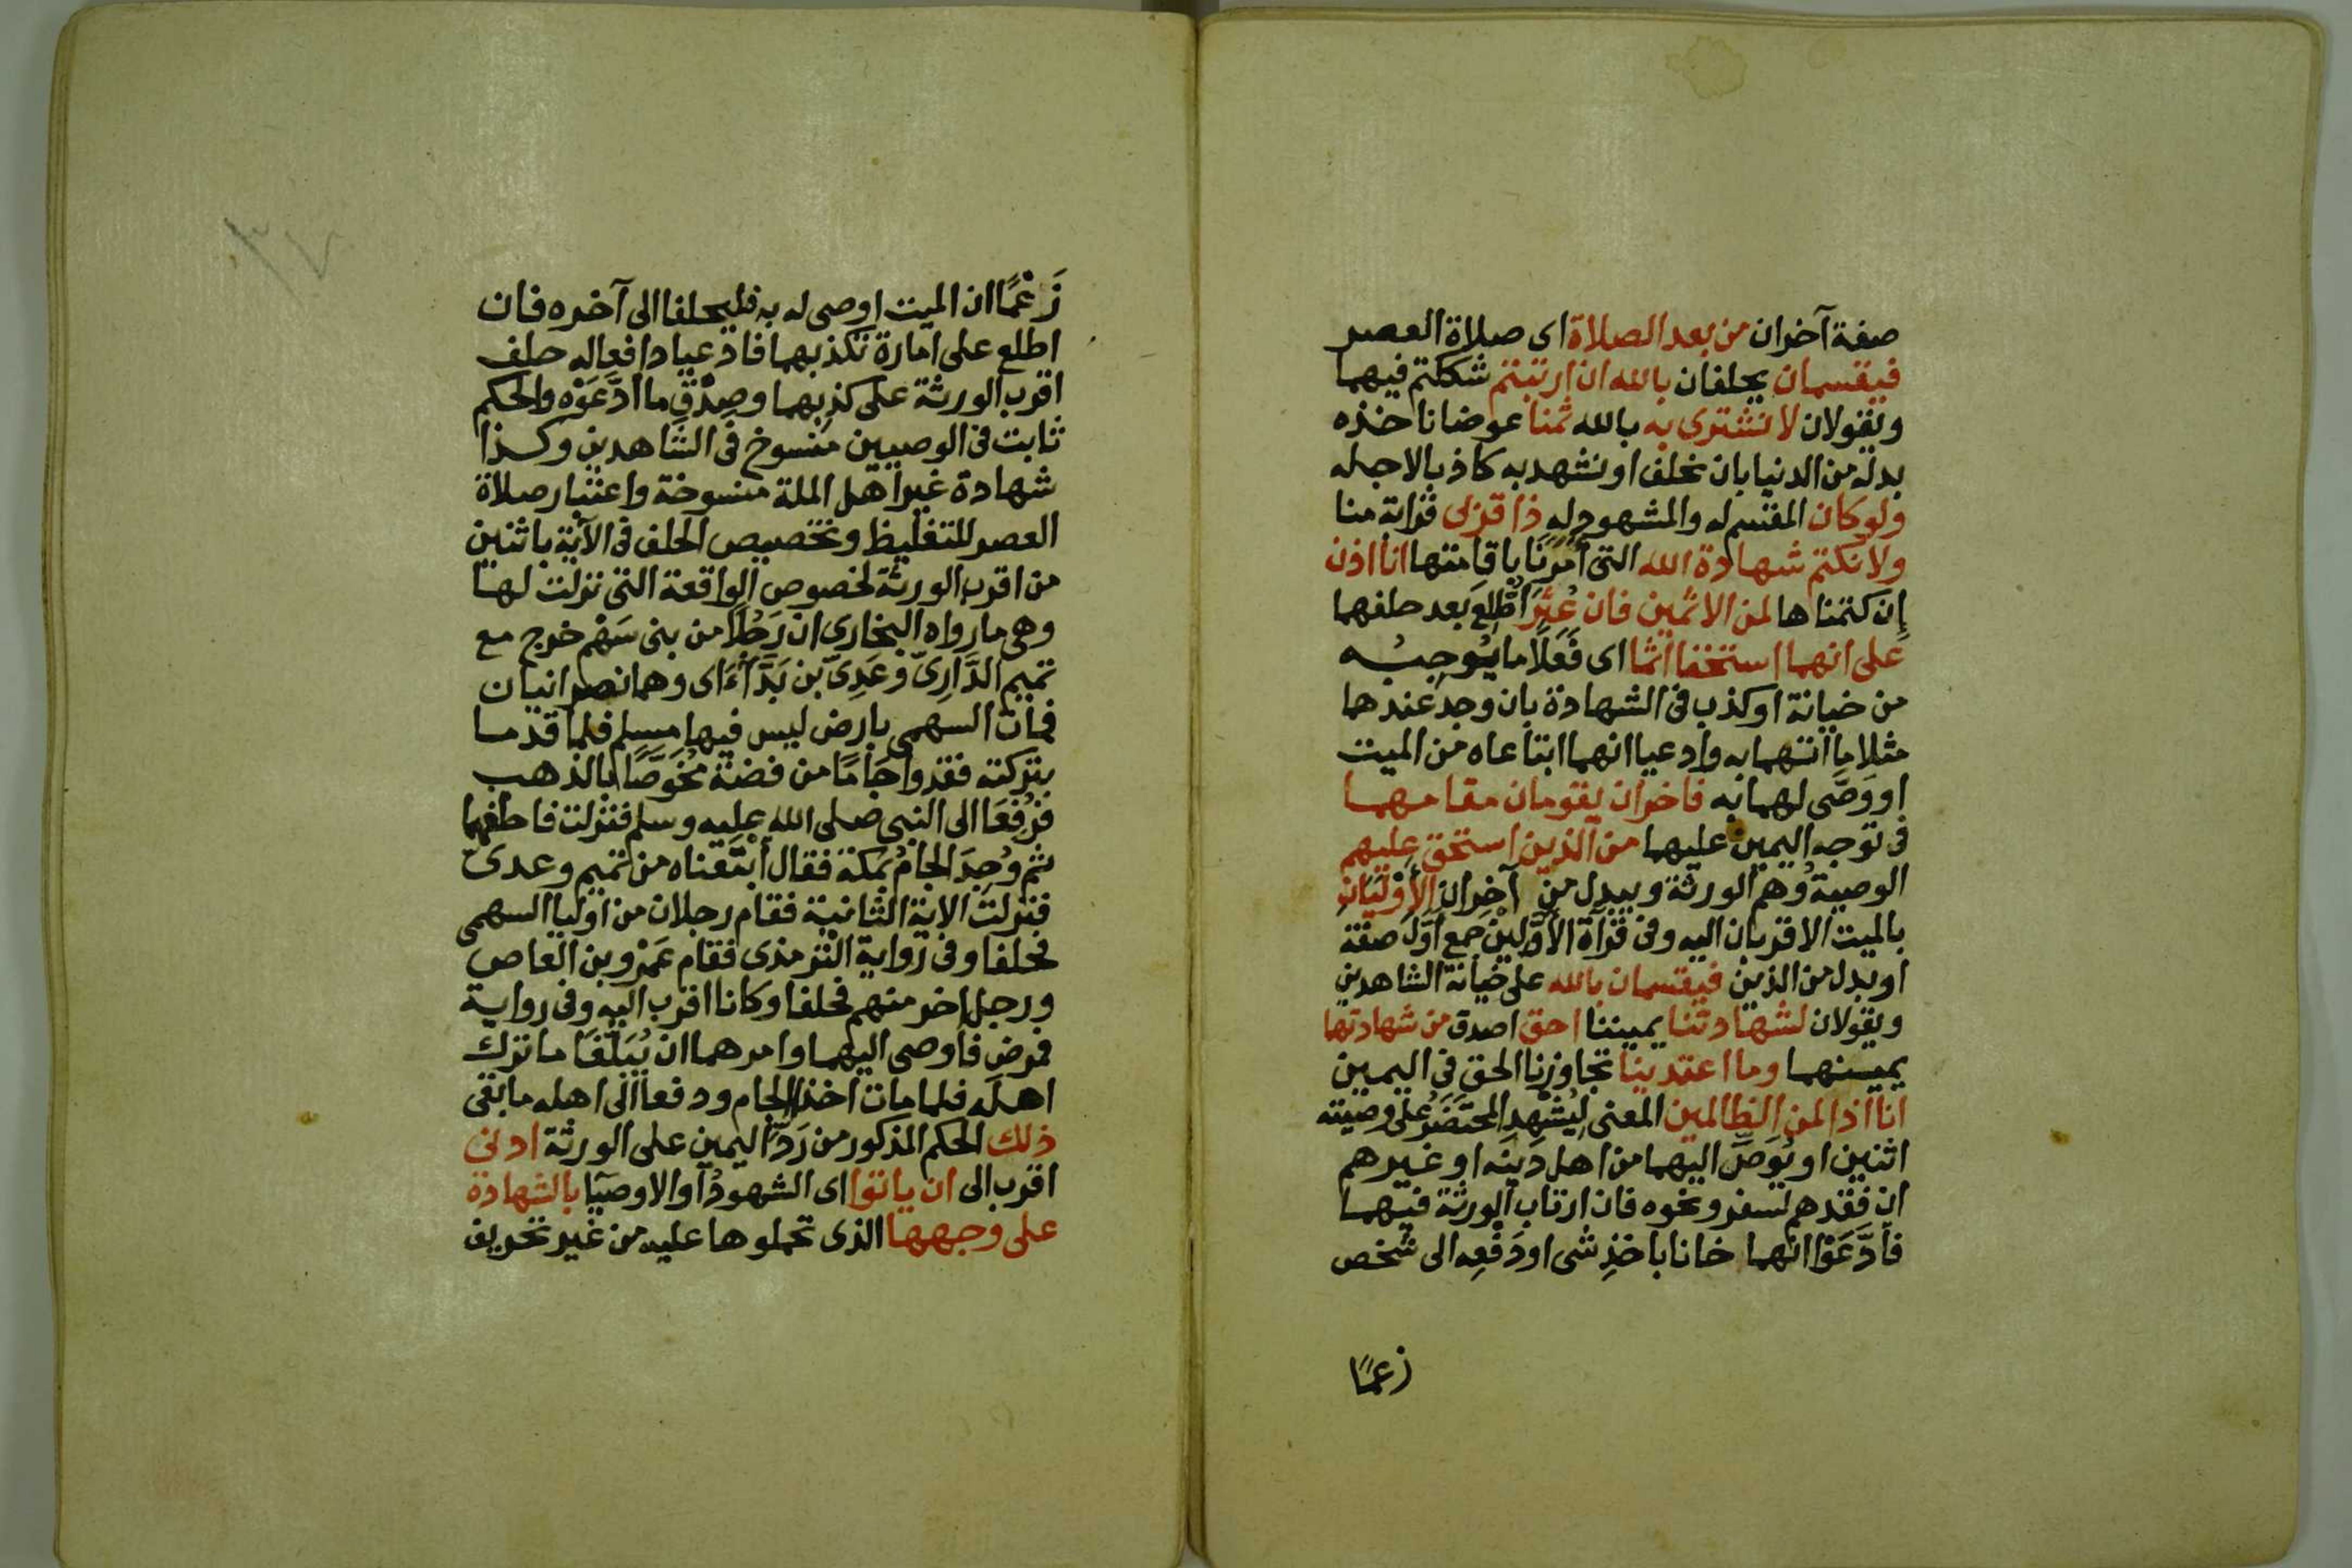 صفة آخران من بعد الصلاة اى صلاة العصر
فيقسمان يحلفان بالله ان ارتبتم شككتم فيهما
ويقولان لا نشترى به بالله ثمنا عوضا ناخذه
بدله من الدنيا بان نحلف او نشهد به كاذبا لاجله
ولو كان المقسم له والمشهود له ذا قربى قرابة منا
ولا نكتم شهادة الله التى أُمِرْنا باقامتها انا اذن
إن كتمناها لمن الاثمين فان عُثِرَ اُطُّلِعَ بعد حلفهما
على انهما استحقا اثما اى فَعَلَا ما يُوجِبُه
من خيانة او كذب فى الشهادة بان وجد عندهما
مثلا ما اتهما به وادعيا انهما ابتاعاه من الميت
او وَصَّى لهما به فاخران يقومان مقامهما
فى توجه اليمين عليهما من الذين استحق عليهم
الوصية وُهم الورثة ويبدل من آخران الأَوْلَيَانِ
بالميت الاقربان اليه وفى قرآة الأوَّلِينَ جمع اَوَّل صفة
او بدل من الذين فيقسمان بالله على خيانة الشاهدين
ويقولان لشهادتنا يميننا احق اصدق من شهادتهما
يمينهما وما اعتدينا تجاوزنا الحق فى اليمين
انا اذا لمن الظالمين المعنى لِيُشْهِدِ المحتَضَرُ على وصيته
اثنين او يُوَصِّ اليهما من اهل دينه او غيرهم
ان فقدهم لسفر ونحوه فان ارتاب الورثة فيهما
فادَّعَوْا انهما خانا باخذِ شى او دَفْعِه الى شخص
زعمًا
زَعْمًا ان الميت اوصى له به فليحلفا الى آخره فان
اطلع على امارة تكذبهما فادعيا دافعا له حلف
اقرب الورثة على كذبهما وصِدْقِ ما ادَّعَوْه والحكم
ثابت فى الوصيين منسوخ فى الشاهدين وكذا
شهادة غير اهل الملة منسوخة واعتبار صلاة
العصر للتغليظ وتخصيص الحلف فى الآية باثنين
من اقرب الورثة لخصوص الواقعة التى نزلت لها
وهى ما رواه البخارى ان رَجُلًا من بنى سَهْم خرج مع
تميم الدَّارِىّ وعَدِىّ بن بَدَّآءَ اى وهما نصرانيان
فمات السهمى بارض ليس فيها مسلم فلما قدما
بتركته فقدوا جَامًا من فضة مُخَوَّصًا بالذهب
فرُفِعَا الى النبى صلى الله عليه وسلم فنزلت فاحلفهما
ثم وُجِدَ الجام بمكة فقال ابْتَعناه من تميم وعدى
فنزلت الاية الثانية فقام رجلان من اوليا السهمى
فحلفا وفى رواية الترمذى فقام عَمْرو بن العاص
ورجل اخر منهم فحلفا وكانا اقرب اليه وفى رواية
فمرض فاوصى اليهما وامرهما ان يُبَلِّغَا ما ترك
اهله فلما مات اخذا الجام ودفعا الى اهله ما بقى
ذلك الحكم المذكور من رَدِّ اليمين على الورثة ادنى
اقرب الى ان ياتوا اى الشهودُ او الاوصيا بالشهادة
على وجهها الذى تحملوها عليه من غير تحريف